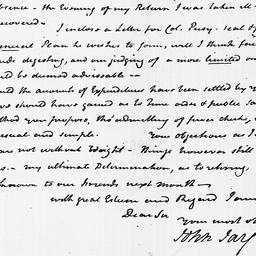 bsence - the Evening of my Return I was taken ill
covered -
I enclose a Letter for Col. Pusy - seal
Plan he wishes to form, will I think
digesting, and on judging of a more limited
be deemed adviseable -
the accounts of Expenditures have been settled by
we should have gained as to time order & public
you propose, the admitting of fewer checks,
and simple. Your objections as
are not without Weight - Things however still
- my ultimate Determination, as to retiring,
known to our Friends next month -
with great Esteem and Regard I am
Dear Sir
Your most ob
John Jay